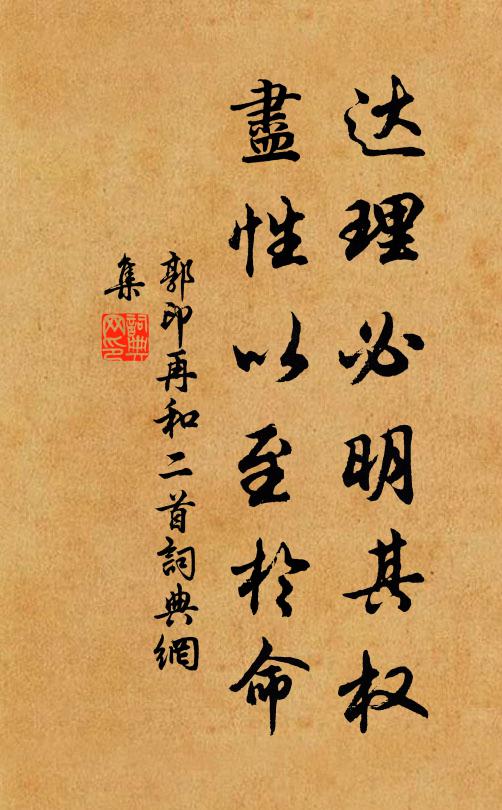 达理必明其权
盡性以至於命
郭印再和二首詞典網
集
詞典
网印